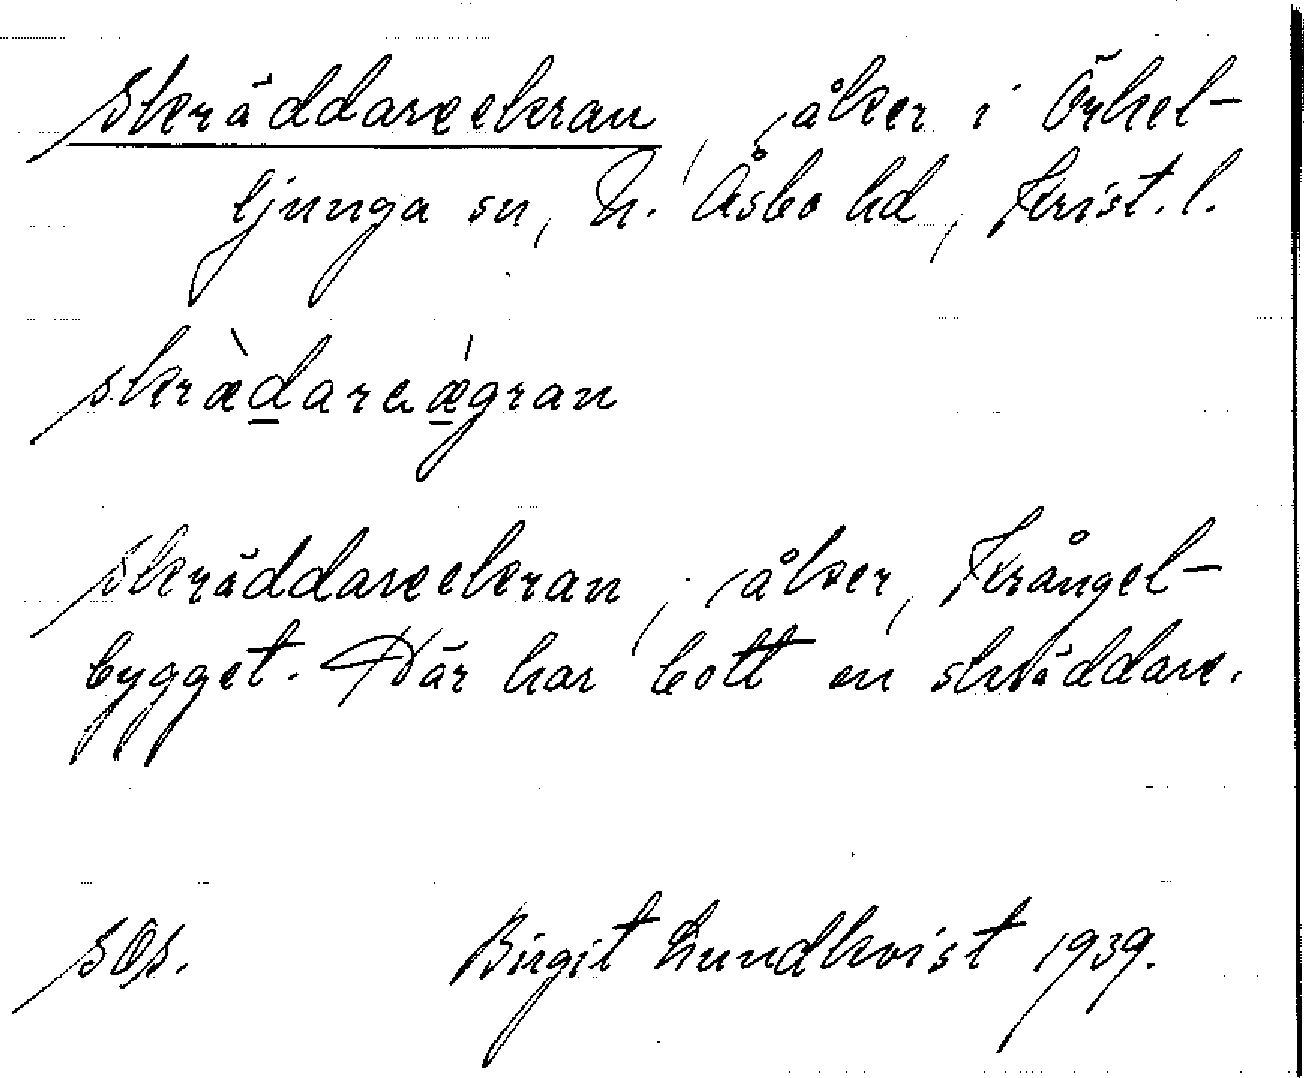 Skräddareekran, åker i Örkel-
ljunga sn, N. Åsbo hd, Krist. l.
skræ̀d̲areǽ̲gran
Skräddareekran, åker, Krångel-
bygget. Där har bott en skräddare.
SOs. Birgit Lundkvist 1939.